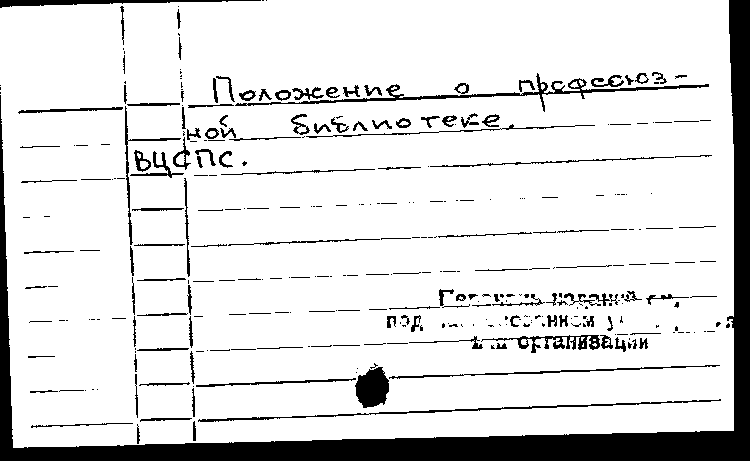 Положение о профсоюз-
ной библиотеке.
ВЦСПС.
Перечень изданий см.
под
организации